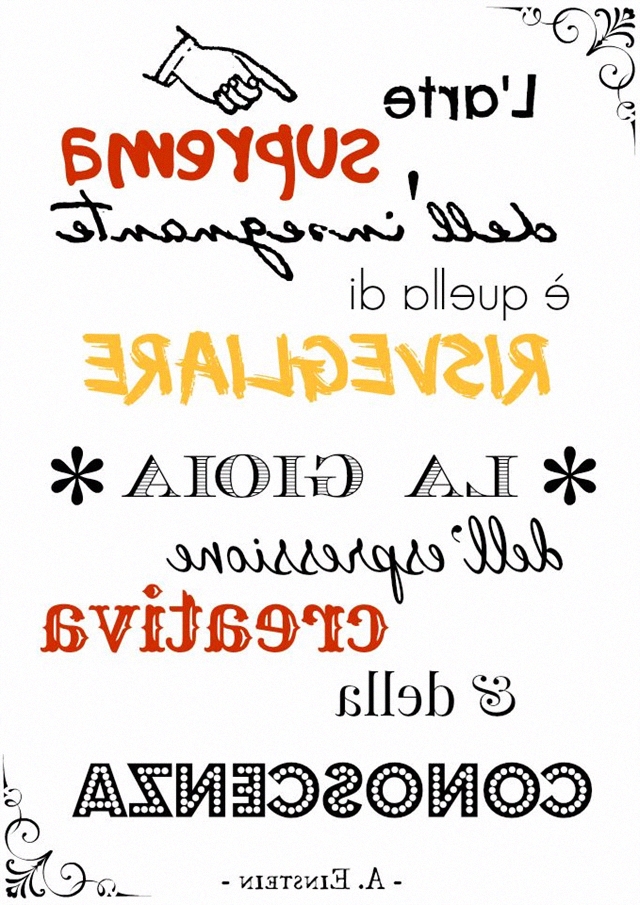 L'arte
suprema
dell'insegnante
è quella di
RISVEGLIARE
* LA GIOIA *
dell'espressione
creativa
& della
CONOSCENZA
- A. EINSTEIN -